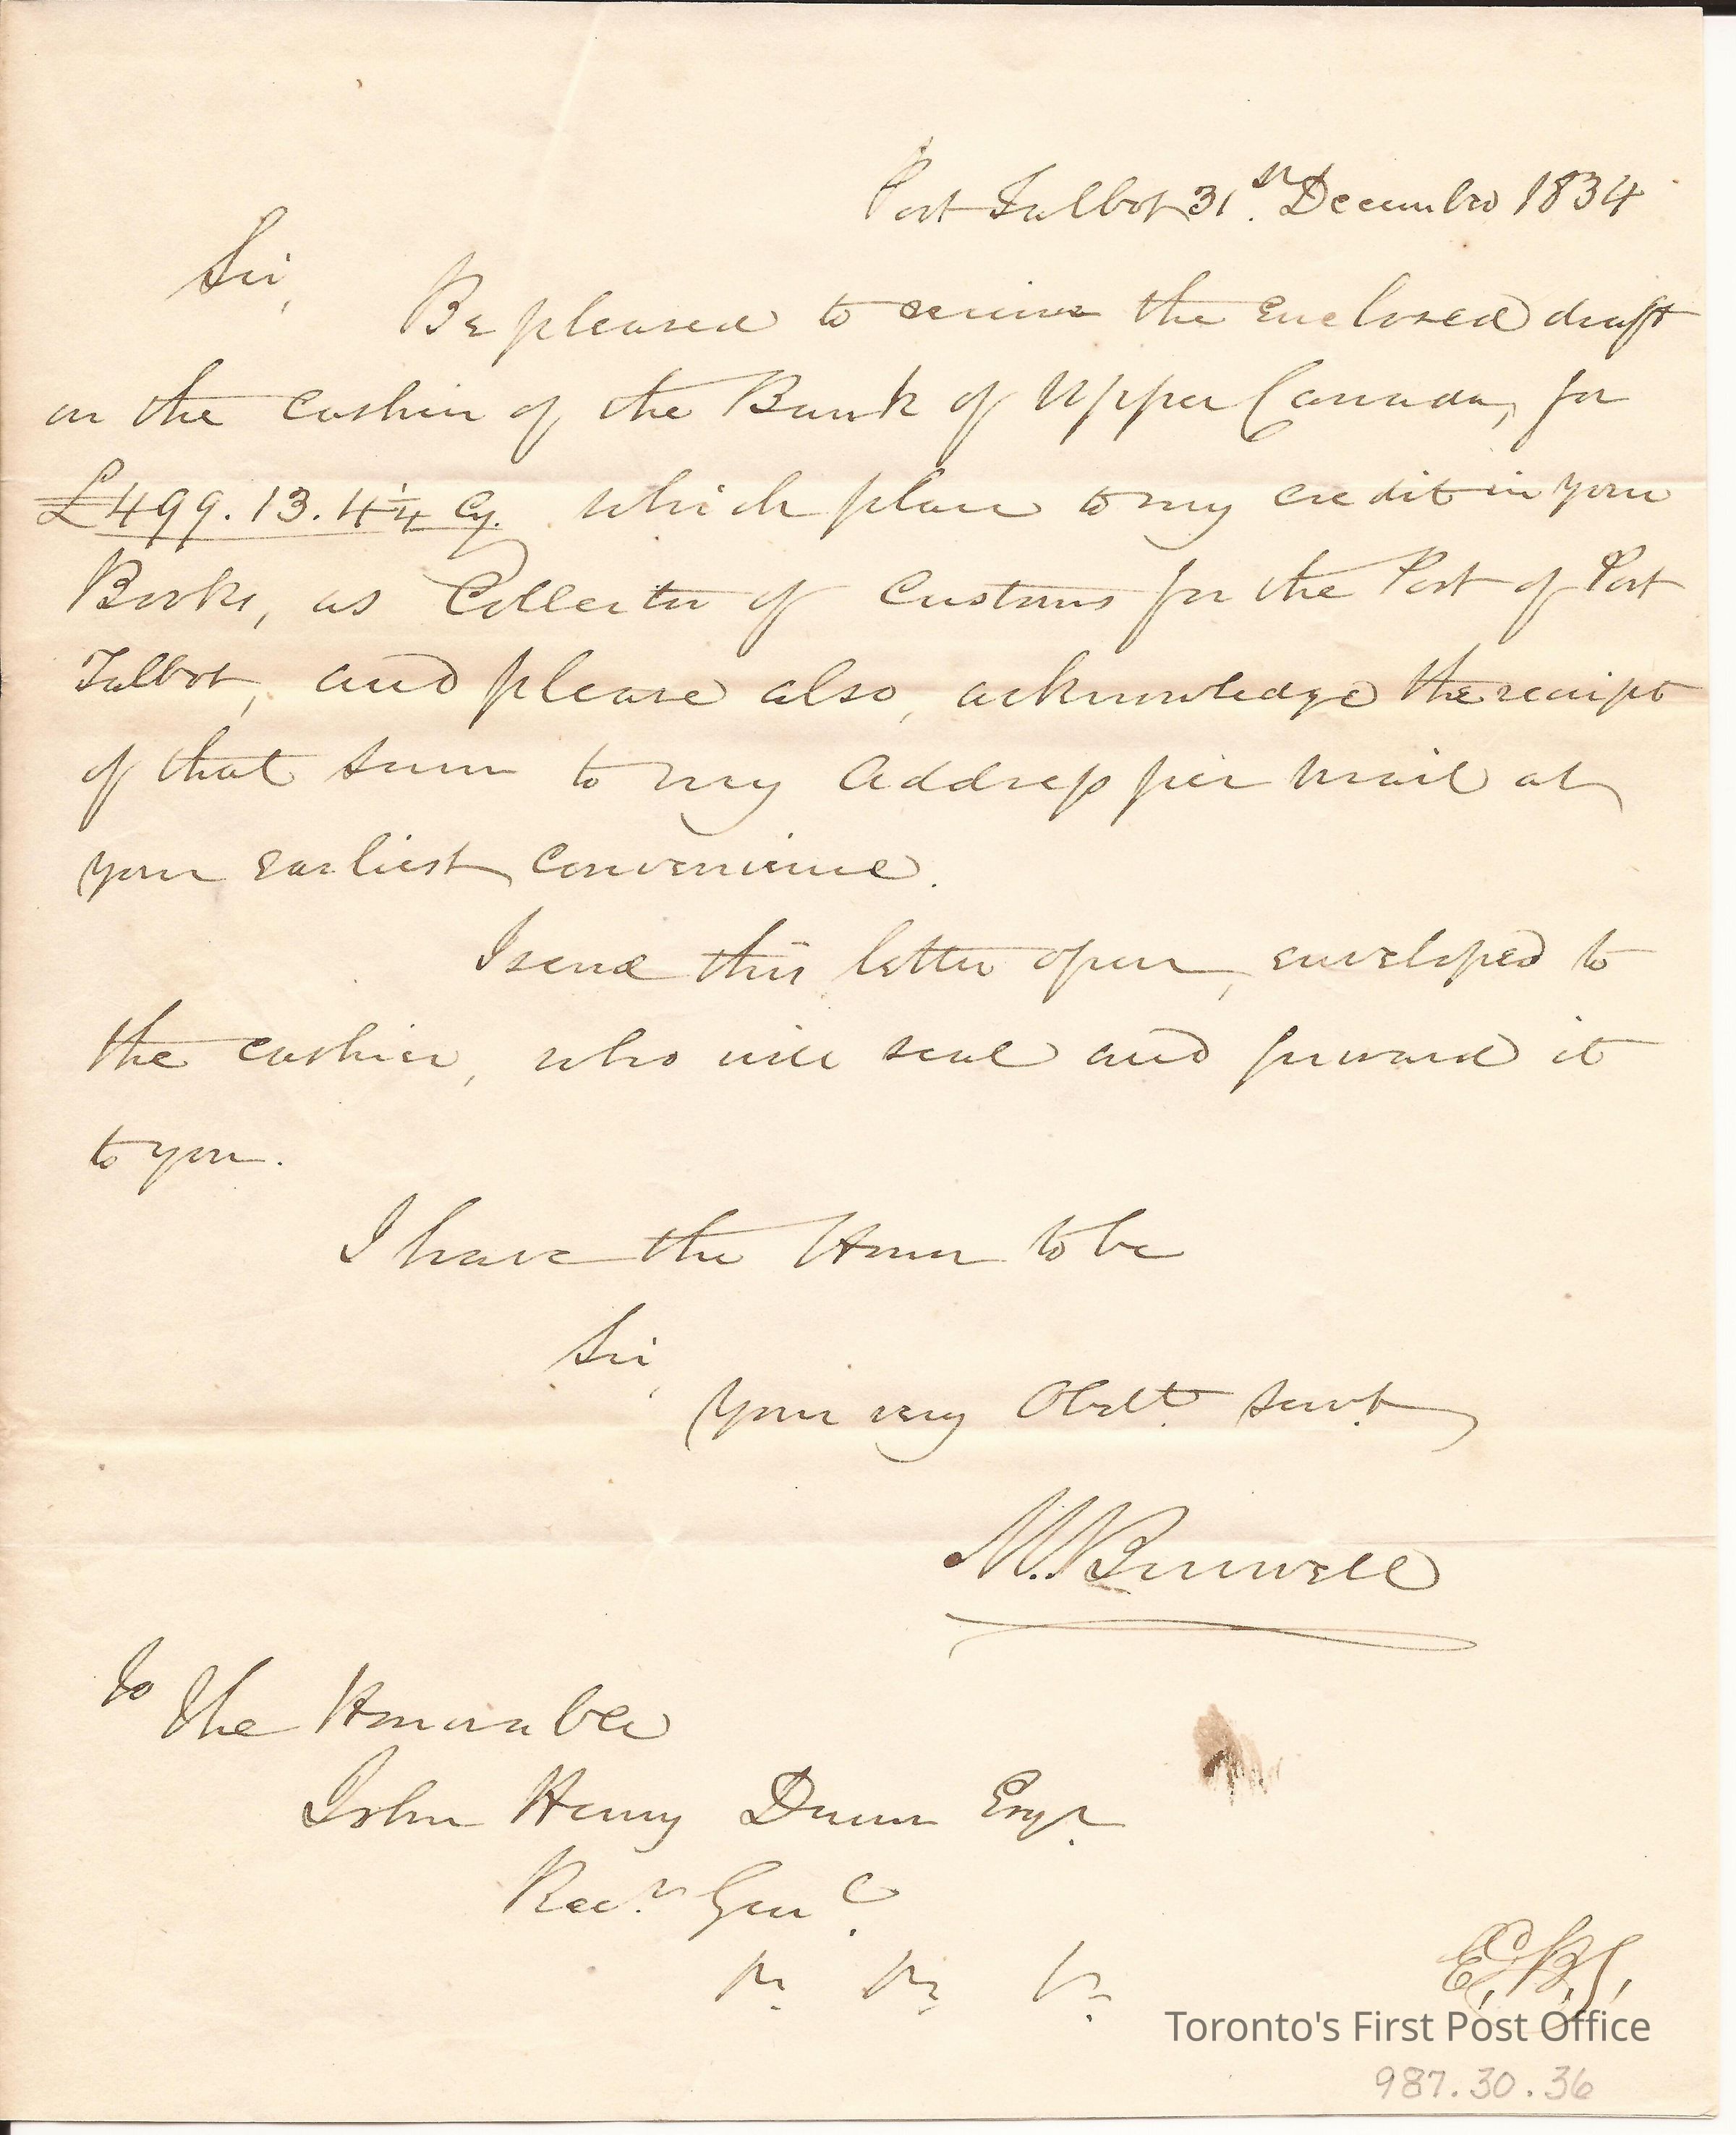 Port Talbot 31st December 1834
Sir,
Be pleased to receive the enclosed draft
on the Cashier of the Bank of Upper Canada, for
£499.13.4¼ Cy. which place to my credit in your
Books, as Collector of Customs for the Port of Port
Talbot, and please also, acknowledge the receipt
of that sum to my Address per mail at
your earliest convenience.
I send this letter open, enveloped to
the cashier, who will seal and forward it
to you.
I have the Honor to be
Sir,
Your very Obdt. Servt.
M. Burwell
To
The Honorable
John Henry Dunn Esqr.
Recr. Genl.
Toronto's First Post Office
987.30.36